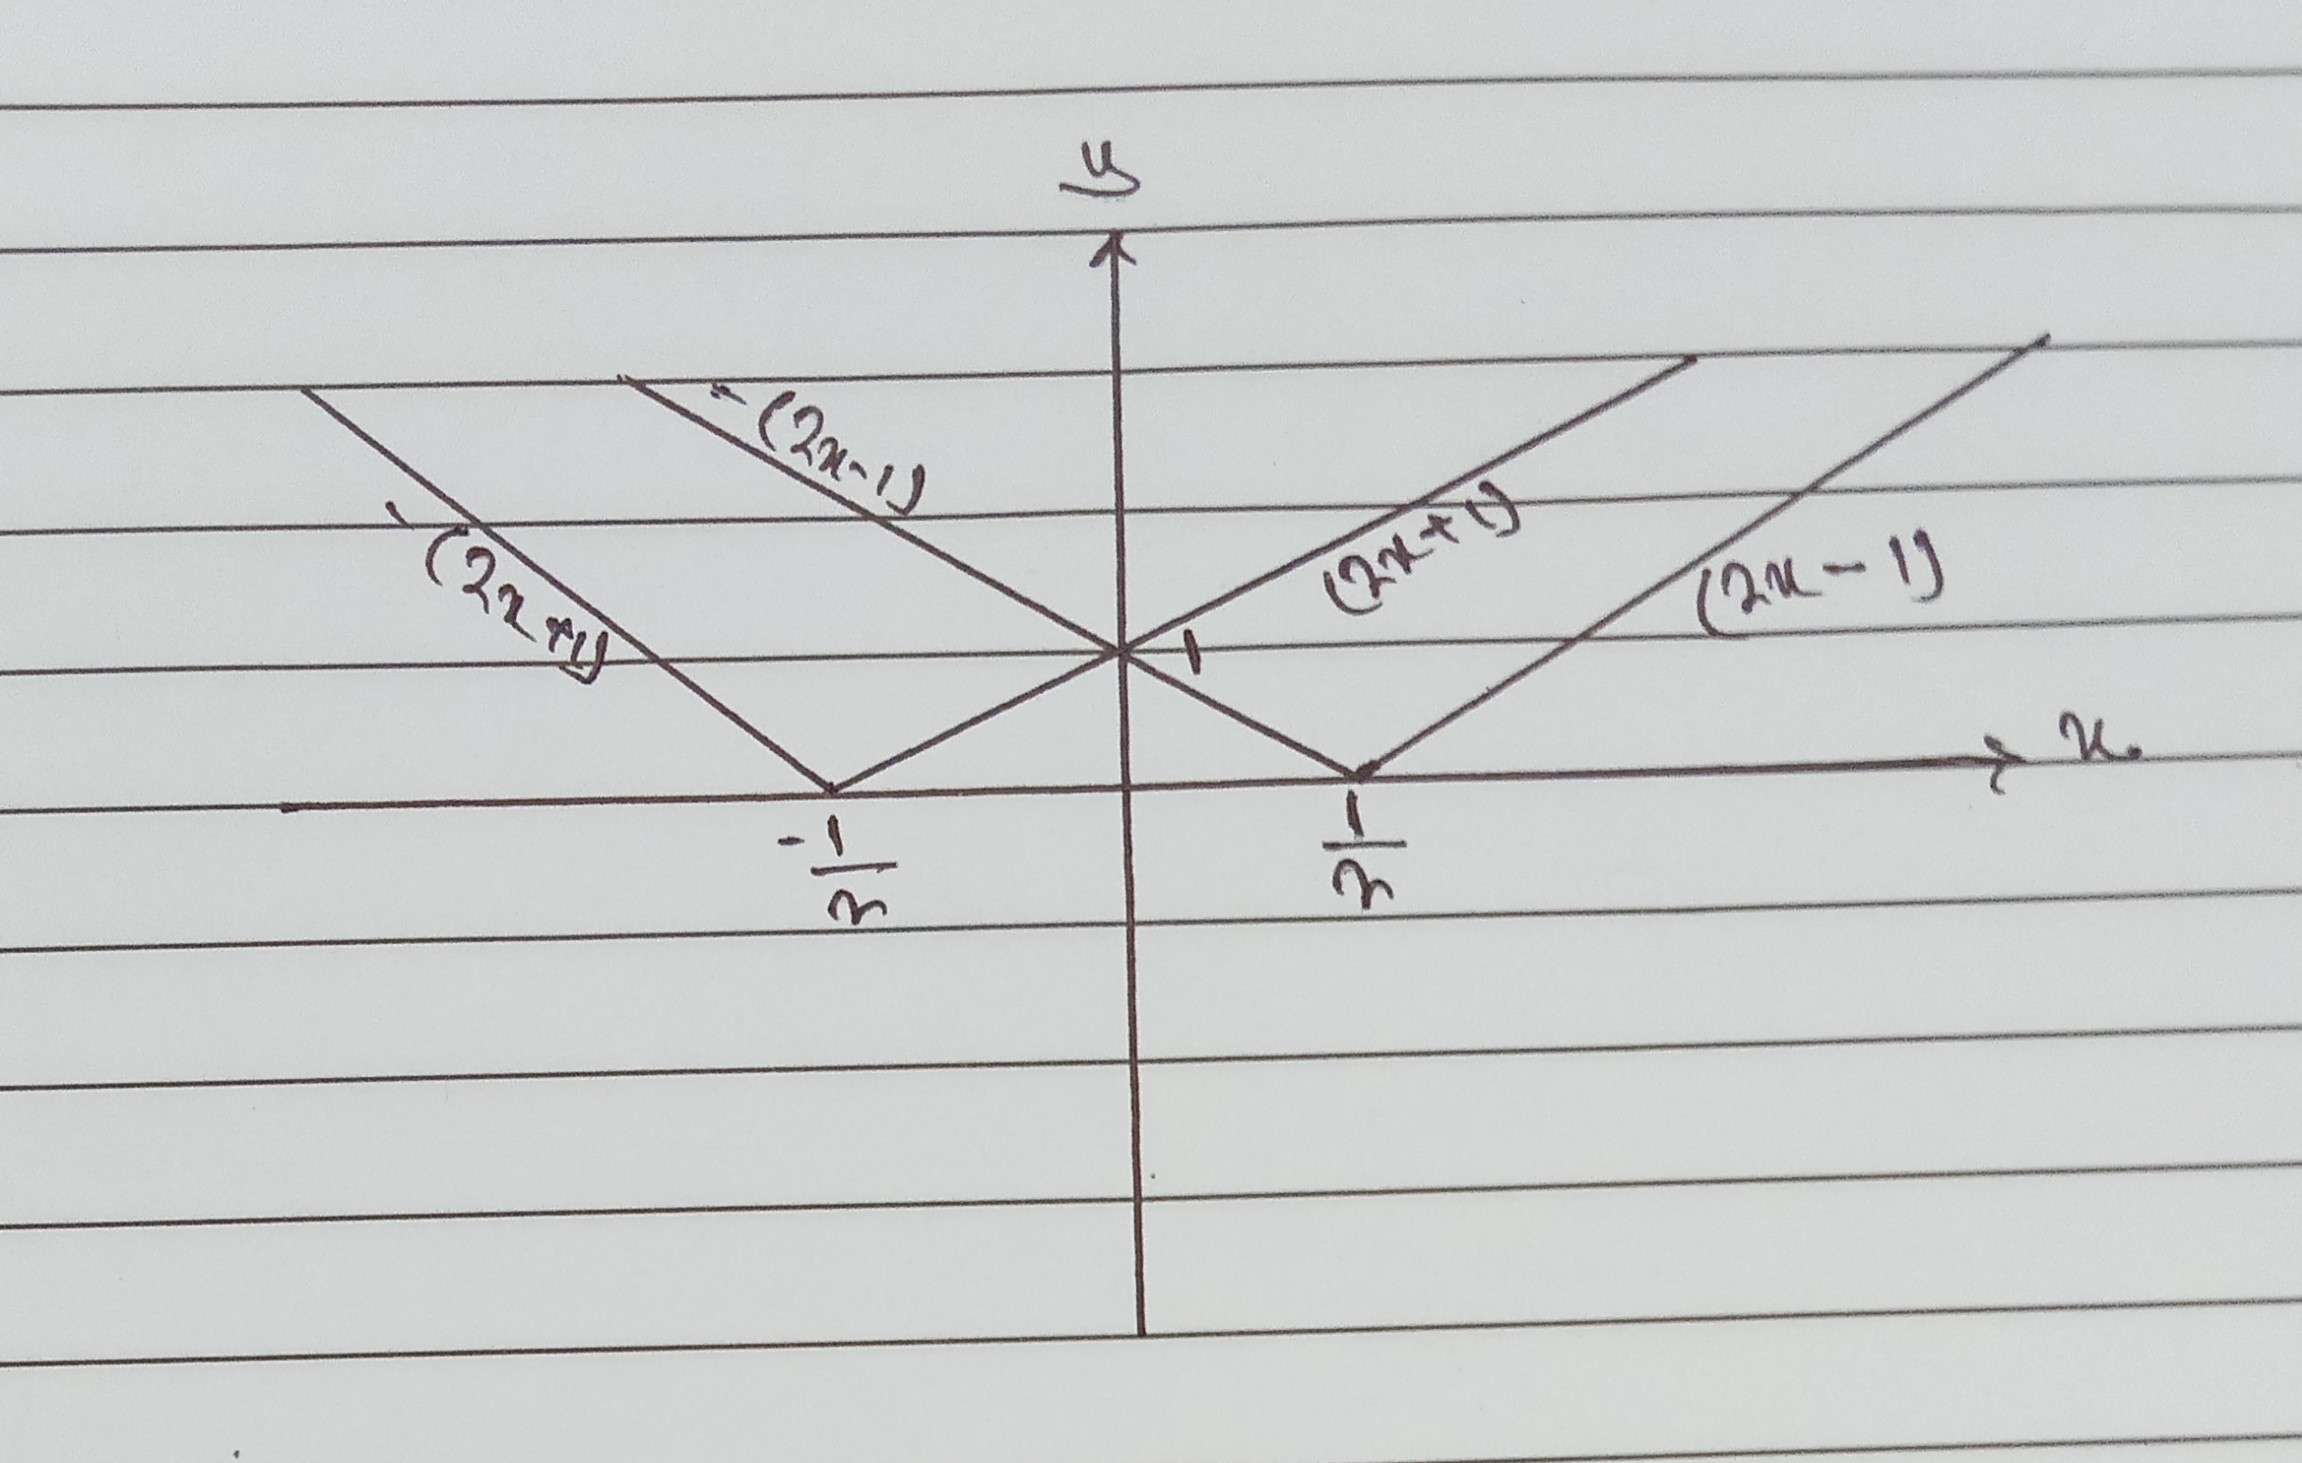 y
-(2x-1)
-(2x+1)
(2x+1)
(2x-1)
1
x
-1/2
1/2